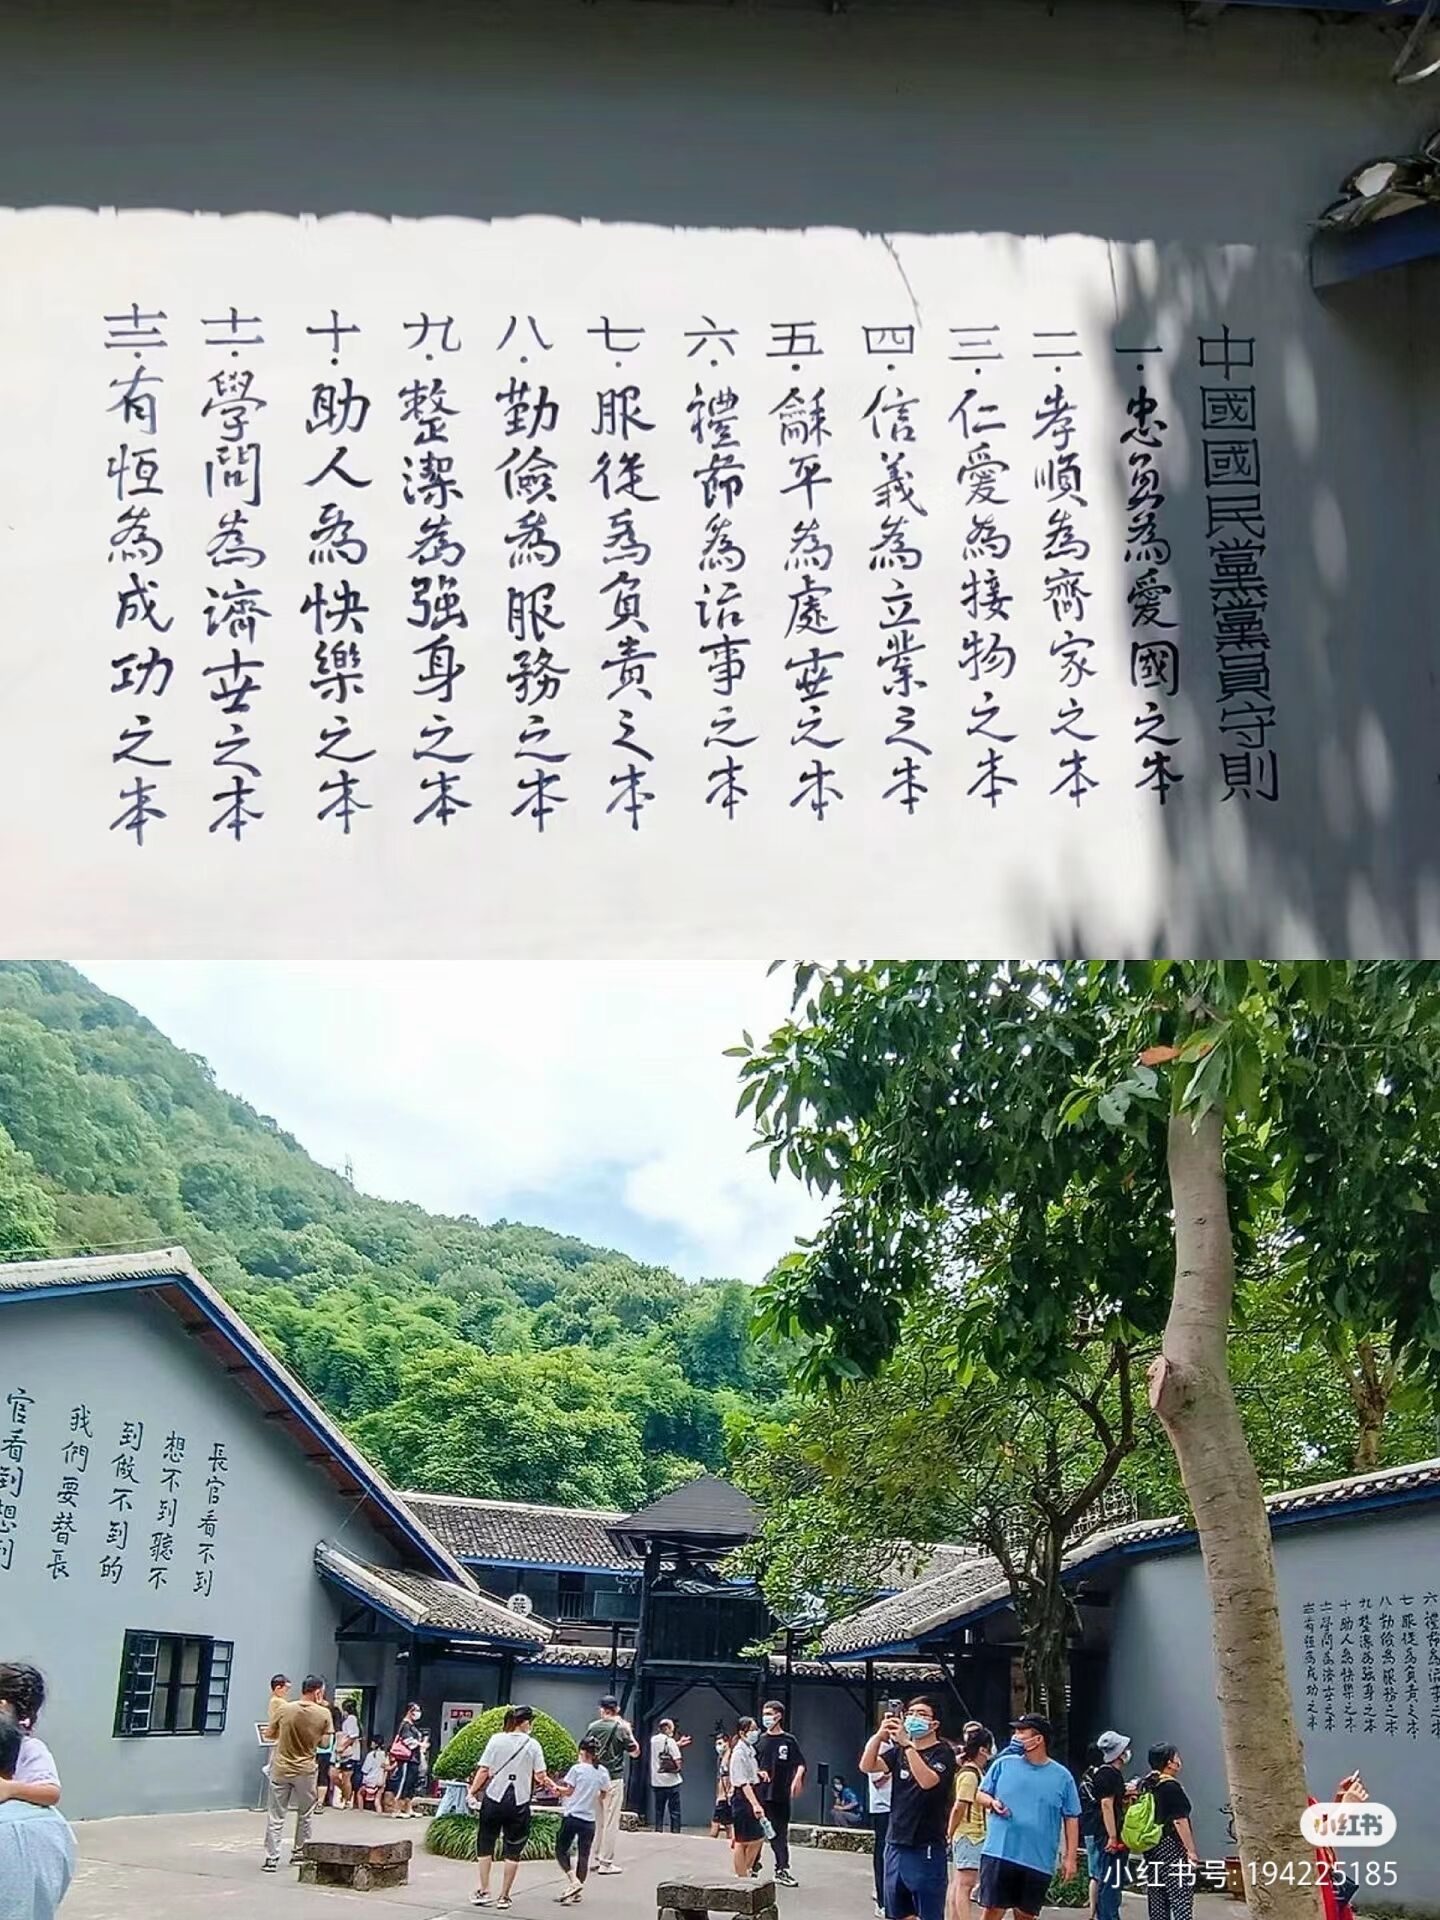 中國國民黨黨員守則
一·忠勇為愛國之本
二·孝順為齊家之本
三·仁愛為接物之本
四·信義為立業之本
五·龢平為處世之本
六·禮節為治事之本
七·服從為負責之本
八·勤儉為服務之本
九·整潔為強身之本
十·助人為快樂之本
十一·學問為濟世之本
十二·有恆為成功之本
長官看不到
想不到聽不
到做不到的
我們要替長
官看到想到
六禮節為治事之本
七服從為負責之本
八勤儉為服務之本
九整潔為強身之本
十助人為快樂之本
十一學問為濟世之本
十二有恆為成功之本
小红书
小红书号: 194225185